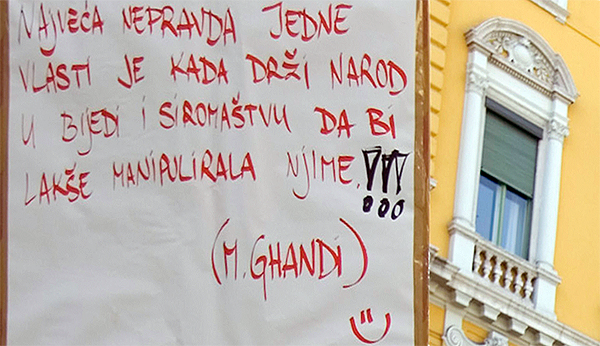 NAJVEĆA NEPRAVDA JEDNE
VLASTI JE KADA DRŽI NAROD
U BIJEDI I SIROMAŠTVU DA BI
LAKŠE MANIPULIRALA NJIME.!!!
(M. GHANDI)